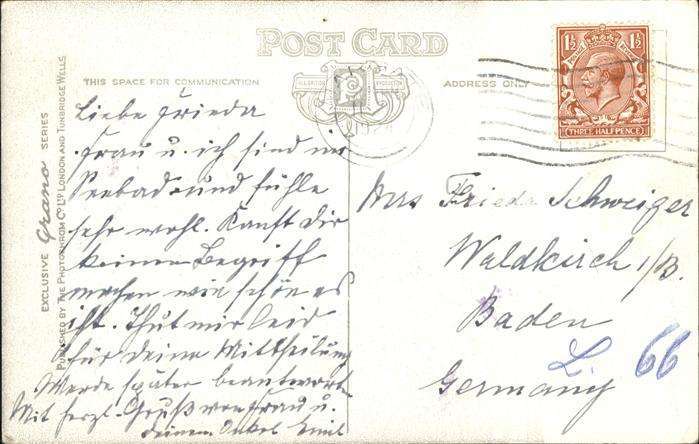 POST CARD
THIS SPACE FOR COMMUNICATION
ADDRESS ONLY
1½ 1½
THREE HALFPENCE
EXCLUSIVE Grano SERIES
PUBLISHED BY THE PHOTOCHROM CO. LTD. LONDON AND TUNBRIDGE WELLS.
Liebe Frieda
Frau u. ich sind im
Seebad und fühle
sehr wohl. Kanst Dir
keinen Begriff
machen wie schön es
ist. Thut mir leid
für deine Mittheilung
Werde später beantworten
Mit herzl. Gruß von Frau u.
deinem Onkel Emil
Mrs Frieda Schweizer
Waldkirch i/B.
Baden
L. 66
Germany